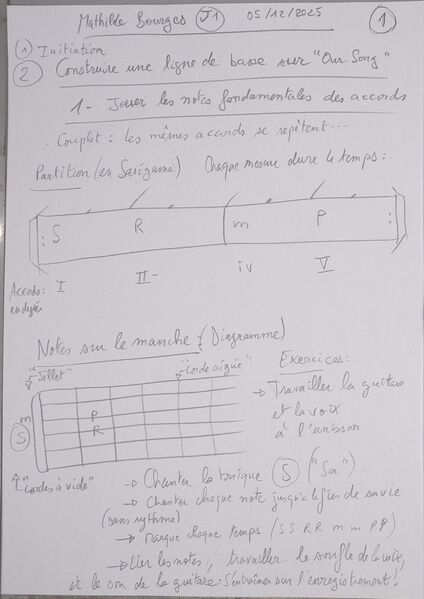 Mathilde Bourges J1 05/12/2025 1
1 Initiation
2 Construire une ligne de basse sur "Our Song"
1- Jouer les notes fondamentales des accords
Couplet : les mêmes accords se repètent...
Partition (en Sarigama) Chaque mesure dure 4 temps :
: S R m P :
Accords : I II- iv V
en degrés
Notes sur le manche (Diagramme)
"Sillet" "Corde aigüe" Exercices :
→ Travailler la guitare
m P et la voix
S R à l'unisson
"Cordes à vide" → Chanter la tonique S ("Sa")
→ Chanter chaque note jusqu'à la fin de sa vie
(sans rythme)
→ Marque chaque temps (SS RR m m PP)
→ Lier les notes, travailler le souffle de la voix,
et le son de la guitare. S'entraîner sur l'enregistrement!